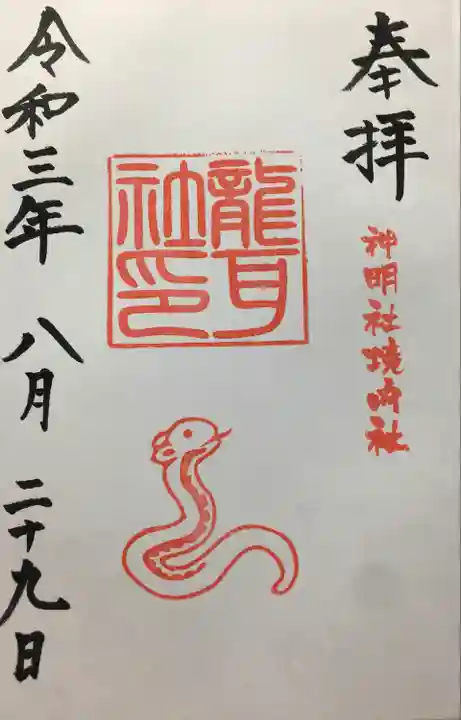 奉拝
神明社境内社
龍耳
社印
令和三年 八月 二十九日